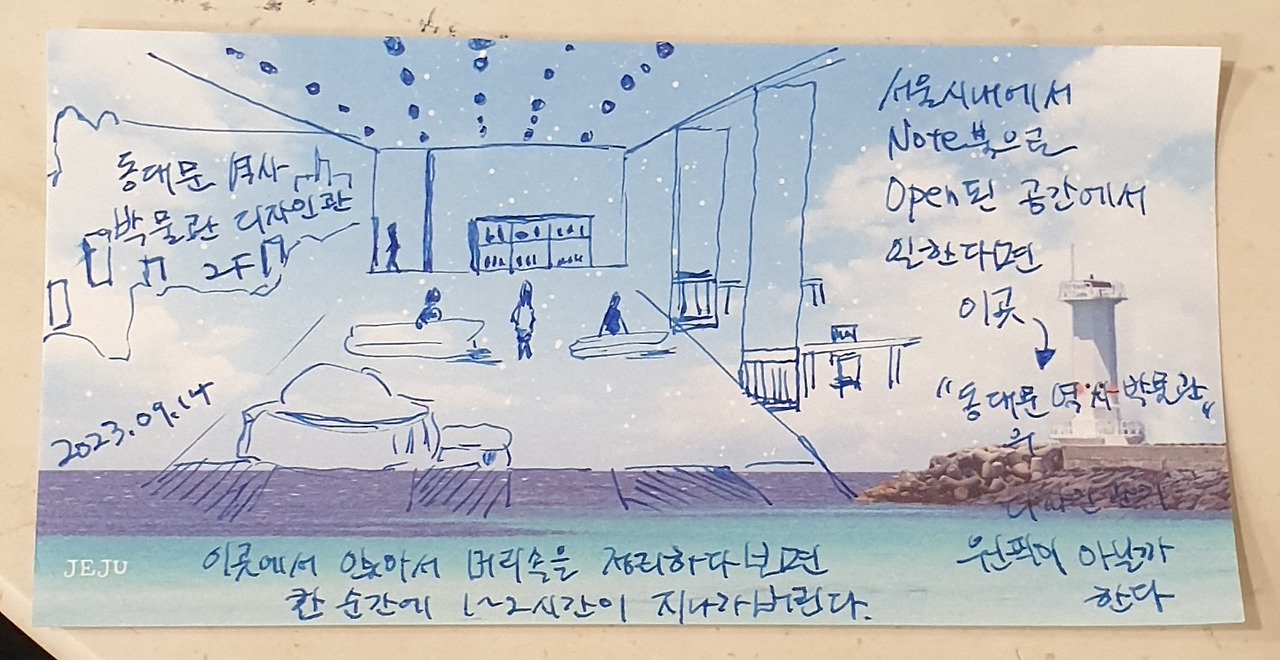 동대문 역사
박물관 디자인관
2F
2023.09.14
서울시내에서
Note북으로
Open된 공간에서
일한다면
이곳
"동대문 역사 박물관"
의
원픽이 아닐까
한다
JEJU
이곳에서 앉아서 머리속을 정리하다보면
한 순간에 1~2시간이 지나가버린다.